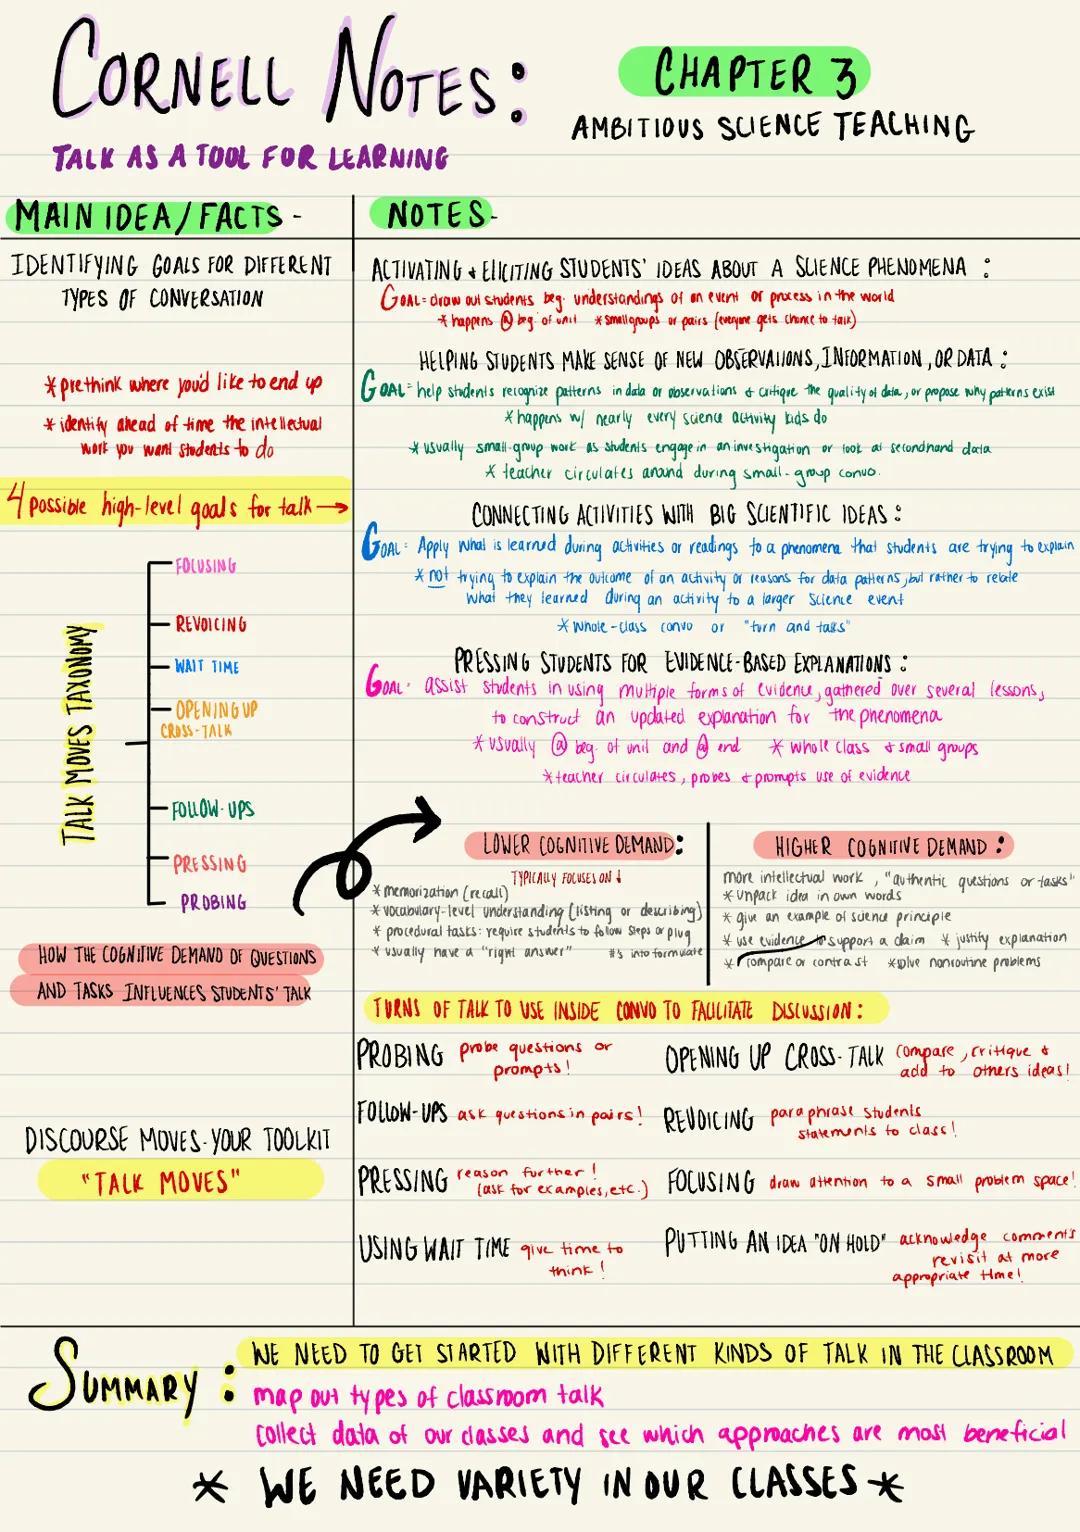 CORNELL NOTES:
CHAPTER 3
AMBITIOUS SCIENCE TEACHING
TALK AS A TOOL FOR LEARNING
MAIN IDEA/FACTS -
IDENTIFYING GOALS FOR DIFFERENT
TYPES OF CONVERSATION
* prethink where you'd like to end up
* identify ahead of time the intellectual
work you want students to do
4 possible high-level goals for talk →
TALK MOVES TAXONOMY
FOCUSING
REVOICING
WAIT TIME
OPENING UP
CROSS-TALK
FOLLOW-UPS
PRESSING
PROBING
HOW THE COGNITIVE DEMAND OF QUESTIONS
AND TASKS INFLUENCES STUDENTS' TALK
DISCOURSE MOVES-YOUR TOOLKIT
"TALK MOVES"
NOTES-
ACTIVATING & ELICITING STUDENTS' IDEAS ABOUT A SCIENCE PHENOMENA :
GOAL= draw out students beg. understandings of an event or process in the world
* happens @ beg. of unit * small groups or pairs (everyone gets chance to talk)
HELPING STUDENTS MAKE SENSE OF NEW OBSERVATIONS, INFORMATION, OR DATA :
GOAL= help students recognize patterns in data or observations & critique the quality of data, or propose why patterns exist
* happens w/ nearly every science activity kids do
* usually small-group work as students engage in an investigation or look at secondhand data
* teacher circulates around during small-group convo.
CONNECTING ACTIVITIES WITH BIG SCIENTIFIC IDEAS :
GOAL= Apply what is learned during activities or readings to a phenomena that students are trying to explain
* not trying to explain the outcome of an activity or reasons for data patterns, but rather to relate
what they learned during an activity to a larger science event
* whole-class convo or "turn and talks"
PRESSING STUDENTS FOR EVIDENCE-BASED EXPLANATIONS :
GOAL= assist students in using multiple forms of evidence, gathered over several lessons,
to construct an updated explanation for the phenomena
* usually @ beg. of unit and @ end * whole class & small groups
* teacher circulates, probes & prompts use of evidence
LOWER COGNITIVE DEMAND:
TYPICALLY FOCUSES ON ↓
* memorization (recall)
* vocabulary-level understanding (listing or describing)
* procedural tasks: require students to follow steps or plug
* usually have a "right answer" #'s into formulate
HIGHER COGNITIVE DEMAND :
more intellectual work, "authentic questions or tasks"
* unpack idea in own words
* give an example of science principle
* use evidence to support a claim * justify explanation
* compare or contrast * solve nonroutine problems
TURNS OF TALK TO USE INSIDE CONVO TO FACILITATE DISCUSSION:
PROBING probe questions or
prompts!
OPENING UP CROSS-TALK compare, critique &
add to others ideas!
FOLLOW-UPS ask questions in pairs!
REVOICING paraphrase students
statements to class!
PRESSING reason further!
(ask for examples, etc.)
FOCUSING draw attention to a small problem space!
USING WAIT TIME give time to
think!
PUTTING AN IDEA "ON HOLD" acknowledge comments
revisit at more
appropriate time!
SUMMARY:
WE NEED TO GET STARTED WITH DIFFERENT KINDS OF TALK IN THE CLASSROOM
map out types of classroom talk
collect data of our classes and see which approaches are most beneficial
* WE NEED VARIETY IN OUR CLASSES *